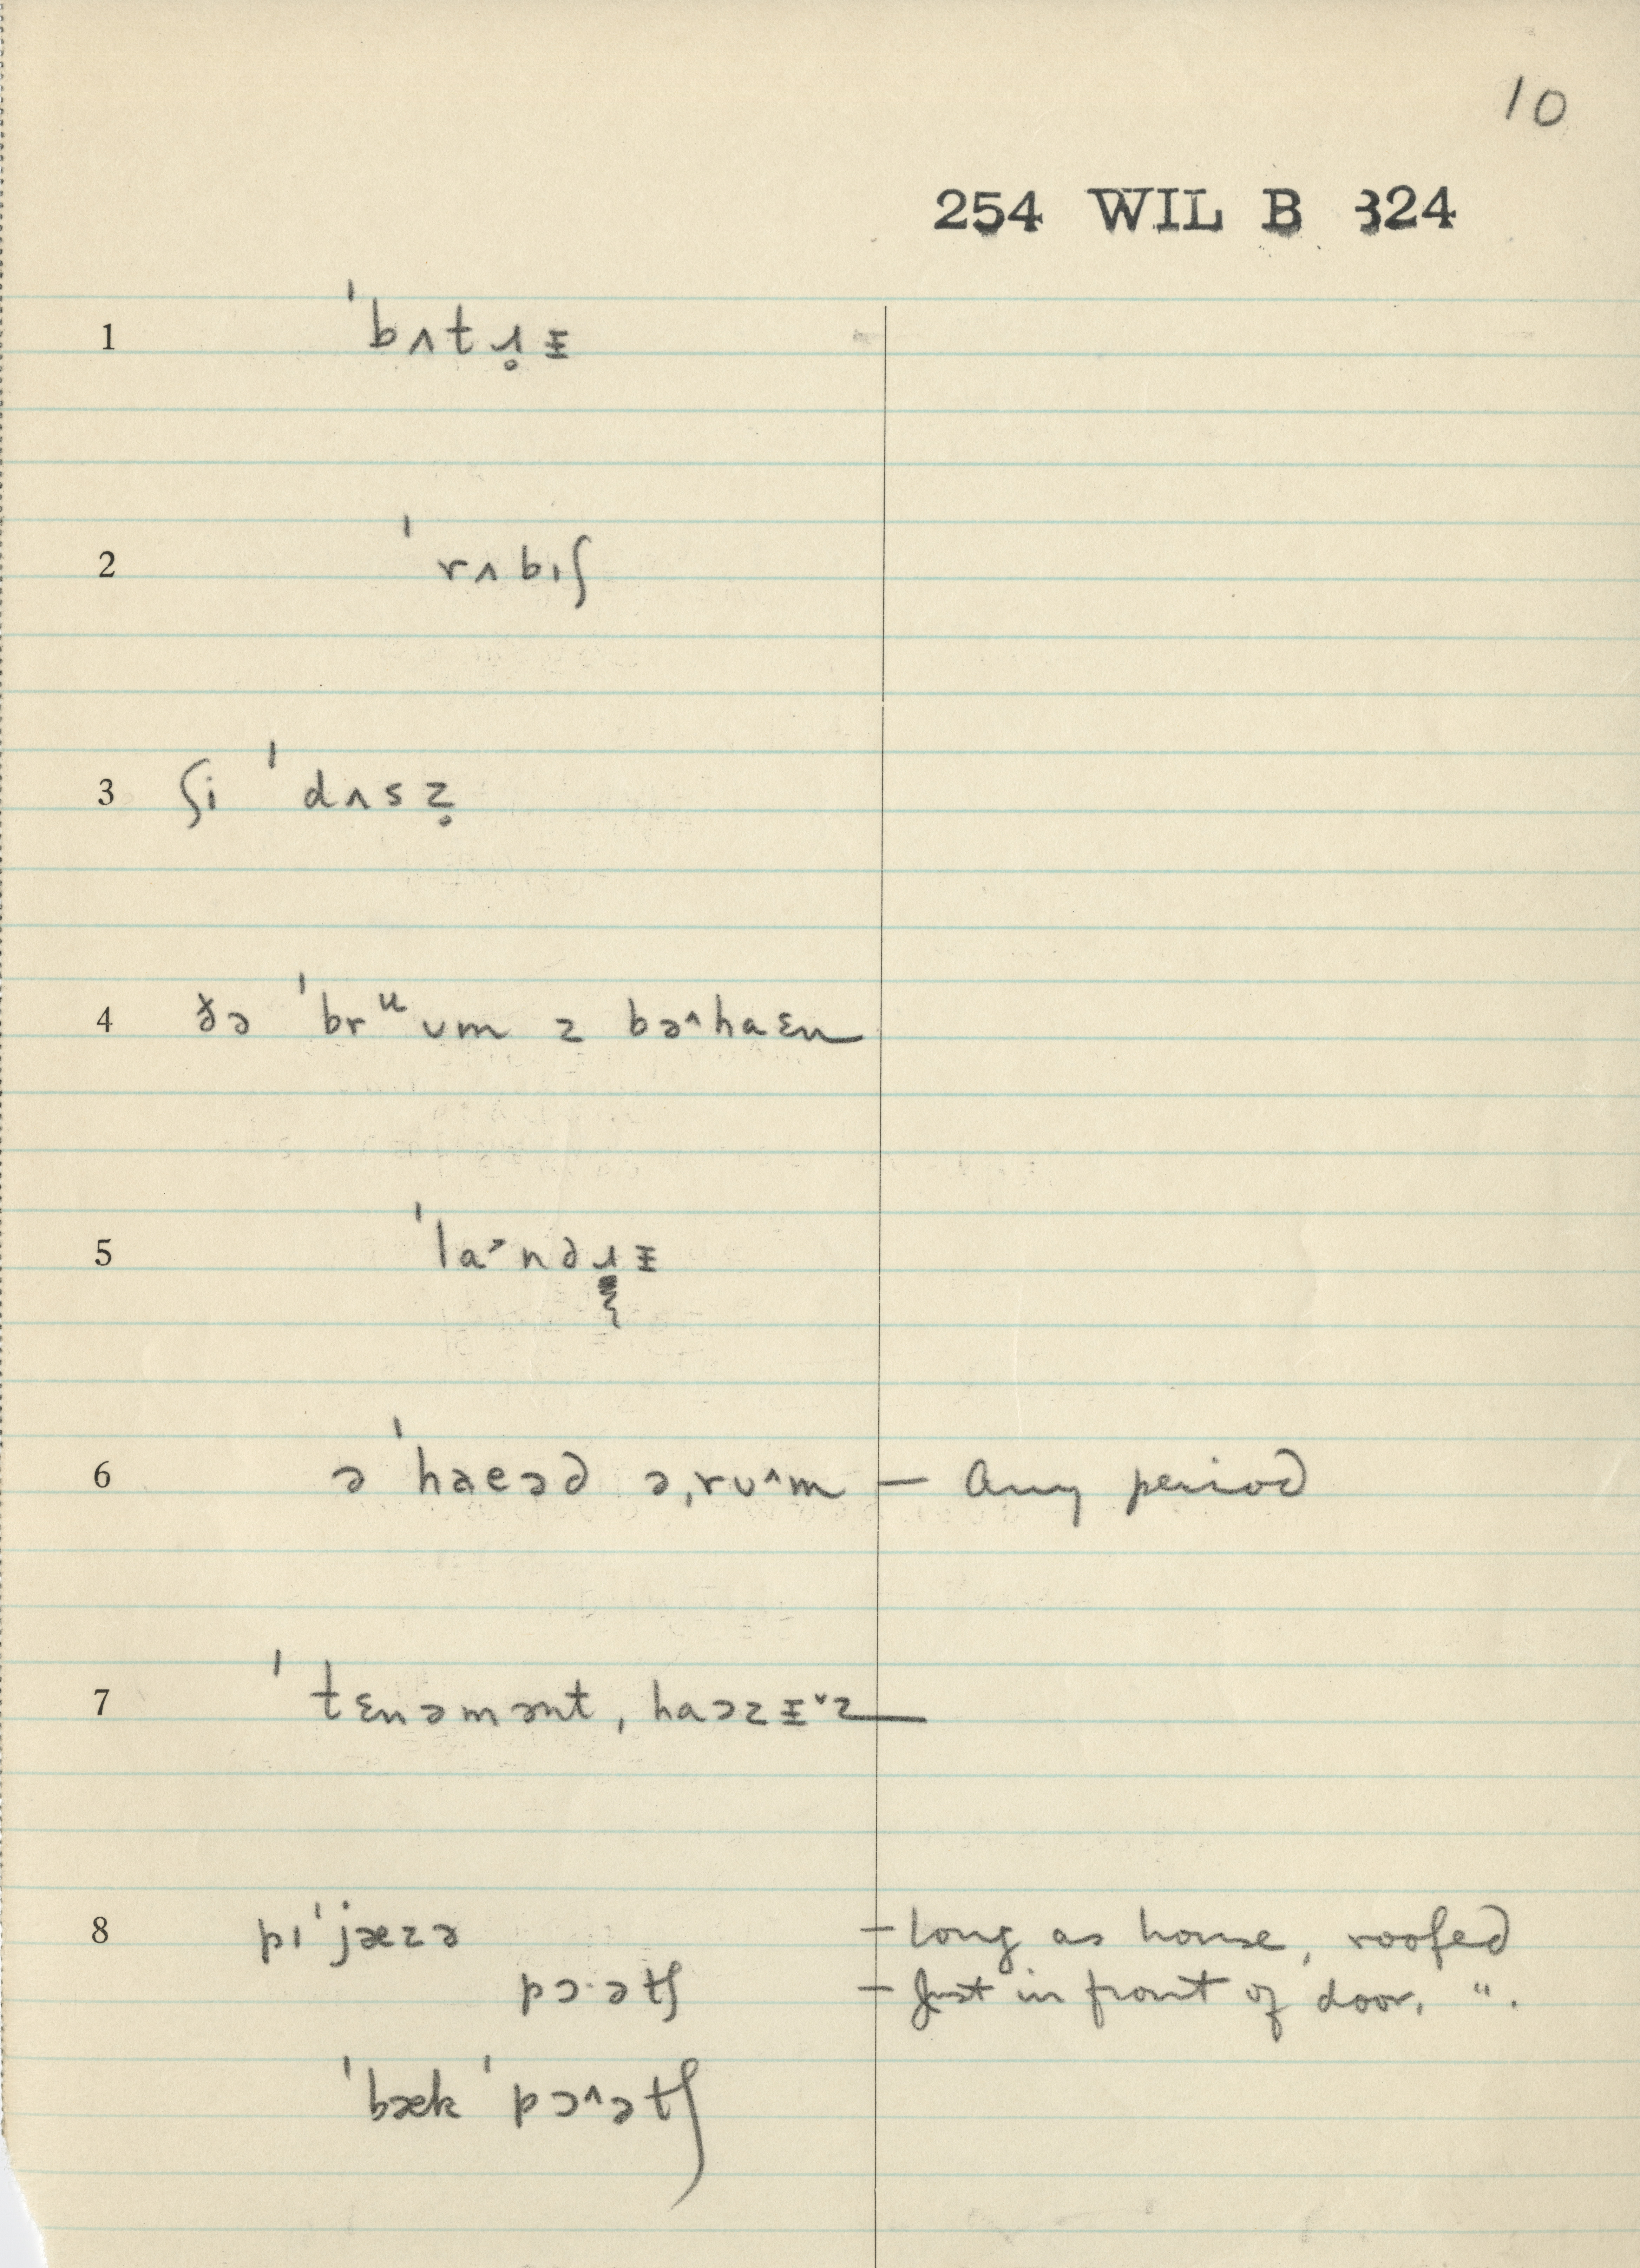 10
254 WIL B 324
1 ˈbʌtɹ̥ᵻ
2 ˈrʌbıʃ
3 ʃi ˈdʌsz̥
4 ðə ˈbrᵘʊm z bə^haɛn
5 ˈla˃ndɹᵻ
6 ə ˈhæeəd ə,rʊ^m – Any period
7 ˈtɛnəmənt, haəzᵻ˅z
8 pıˈjæzə – long as house, roofed
pɔ·ətʃ – Just in front of door, ".
ˈbæk ˈpɔ^ətʃ